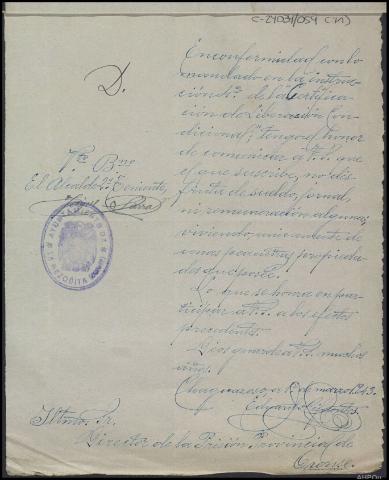 C-24031/059 (21)
D.
En conformidad con lo
mandado en la instruc-
ción 4ª. de la "Certifica-
ción de liberación Con-
dicional", tengo el honor
de comunicar a V.S. que
el que suscribe, no dis-
fruta de sueldo, jornal,
ni remuneración alguna;
viviendo unicamente de
unas pequeñas propieda-
des que posee.
Lo que se honra en par-
ticipar a V.S. a los efectos
precedentes.
Dios guarde a V.S. muchos
años.
de marzo 1.943.
Vº. Bno
El Alcalde 2º Teniente,
AYUNTAMIENTO
Iltmo. Sr.
Director de la Prisión Provincial de
Orense.
AHPOu